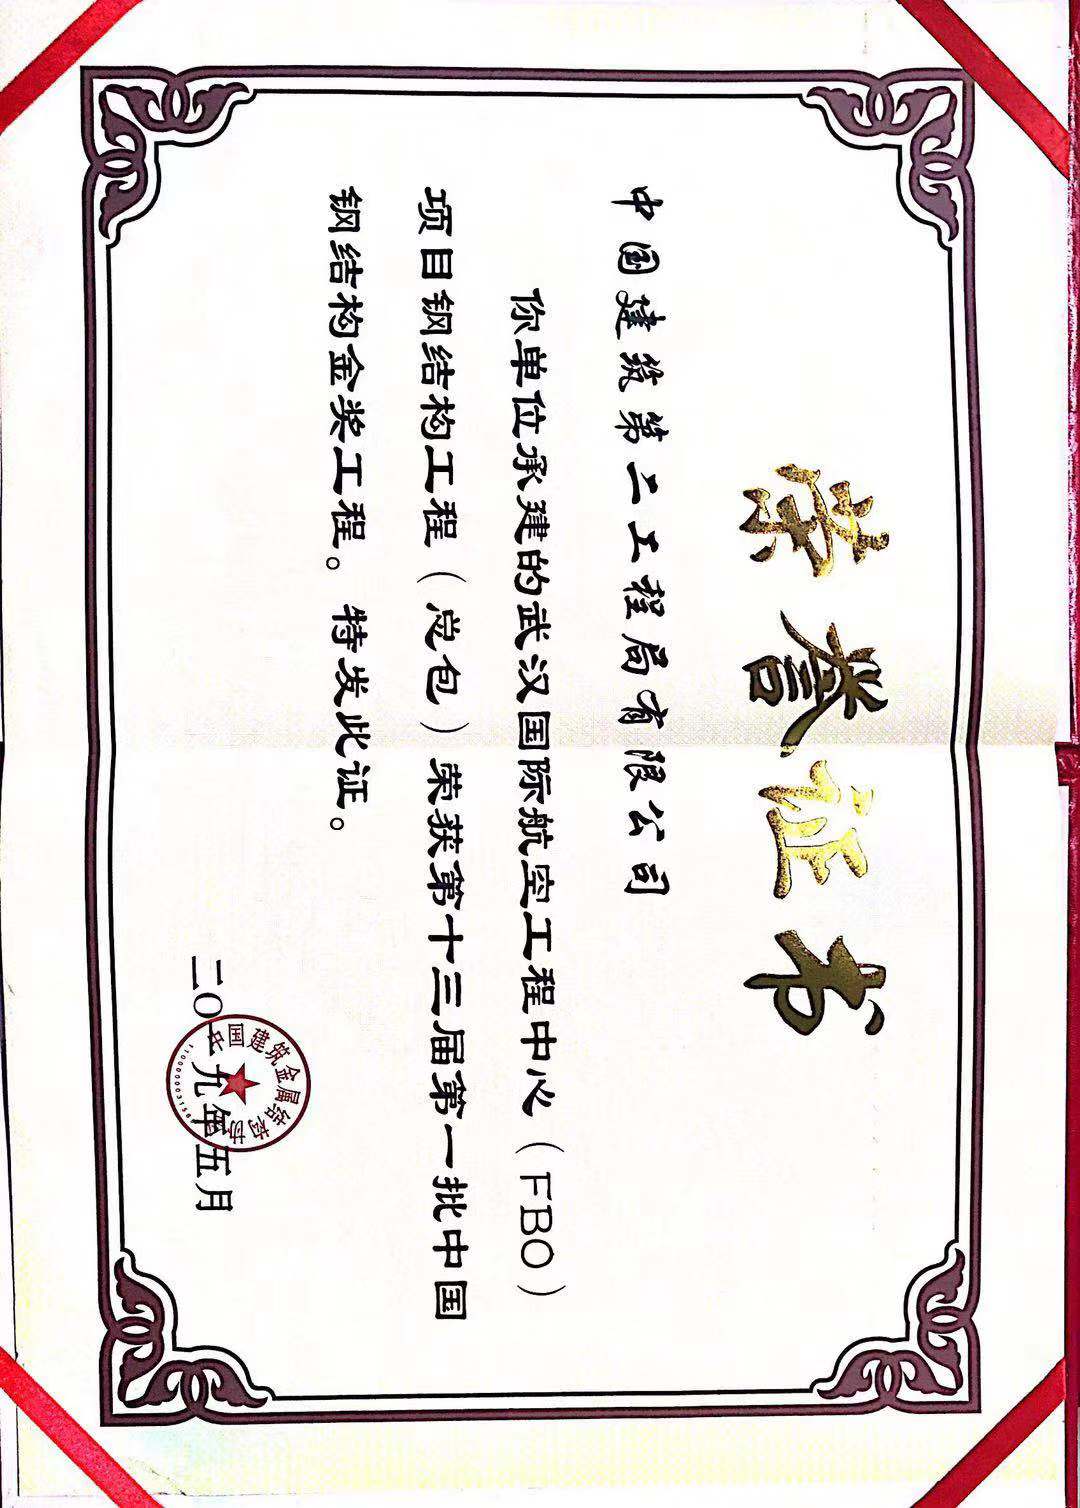 荣誉证书
中国建筑第二工程局有限公司
你单位承建的武汉国际航空工程中心（FBO）
项目钢结构工程（总包）荣获第十三届第一批中国
钢结构金奖工程。特发此证。
中国建筑金属结构协
二〇一九年五月